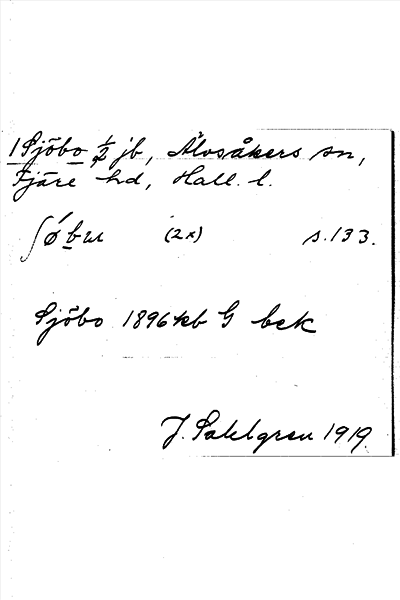 1 Sjöbo 1/2 jb, Älvsåkers sn,
Fjäre hd, Hall. l.
ʃǿbu (2x) s. 133.
Sjöbo 1896 kb G bek
J. Sahlgren 1919.